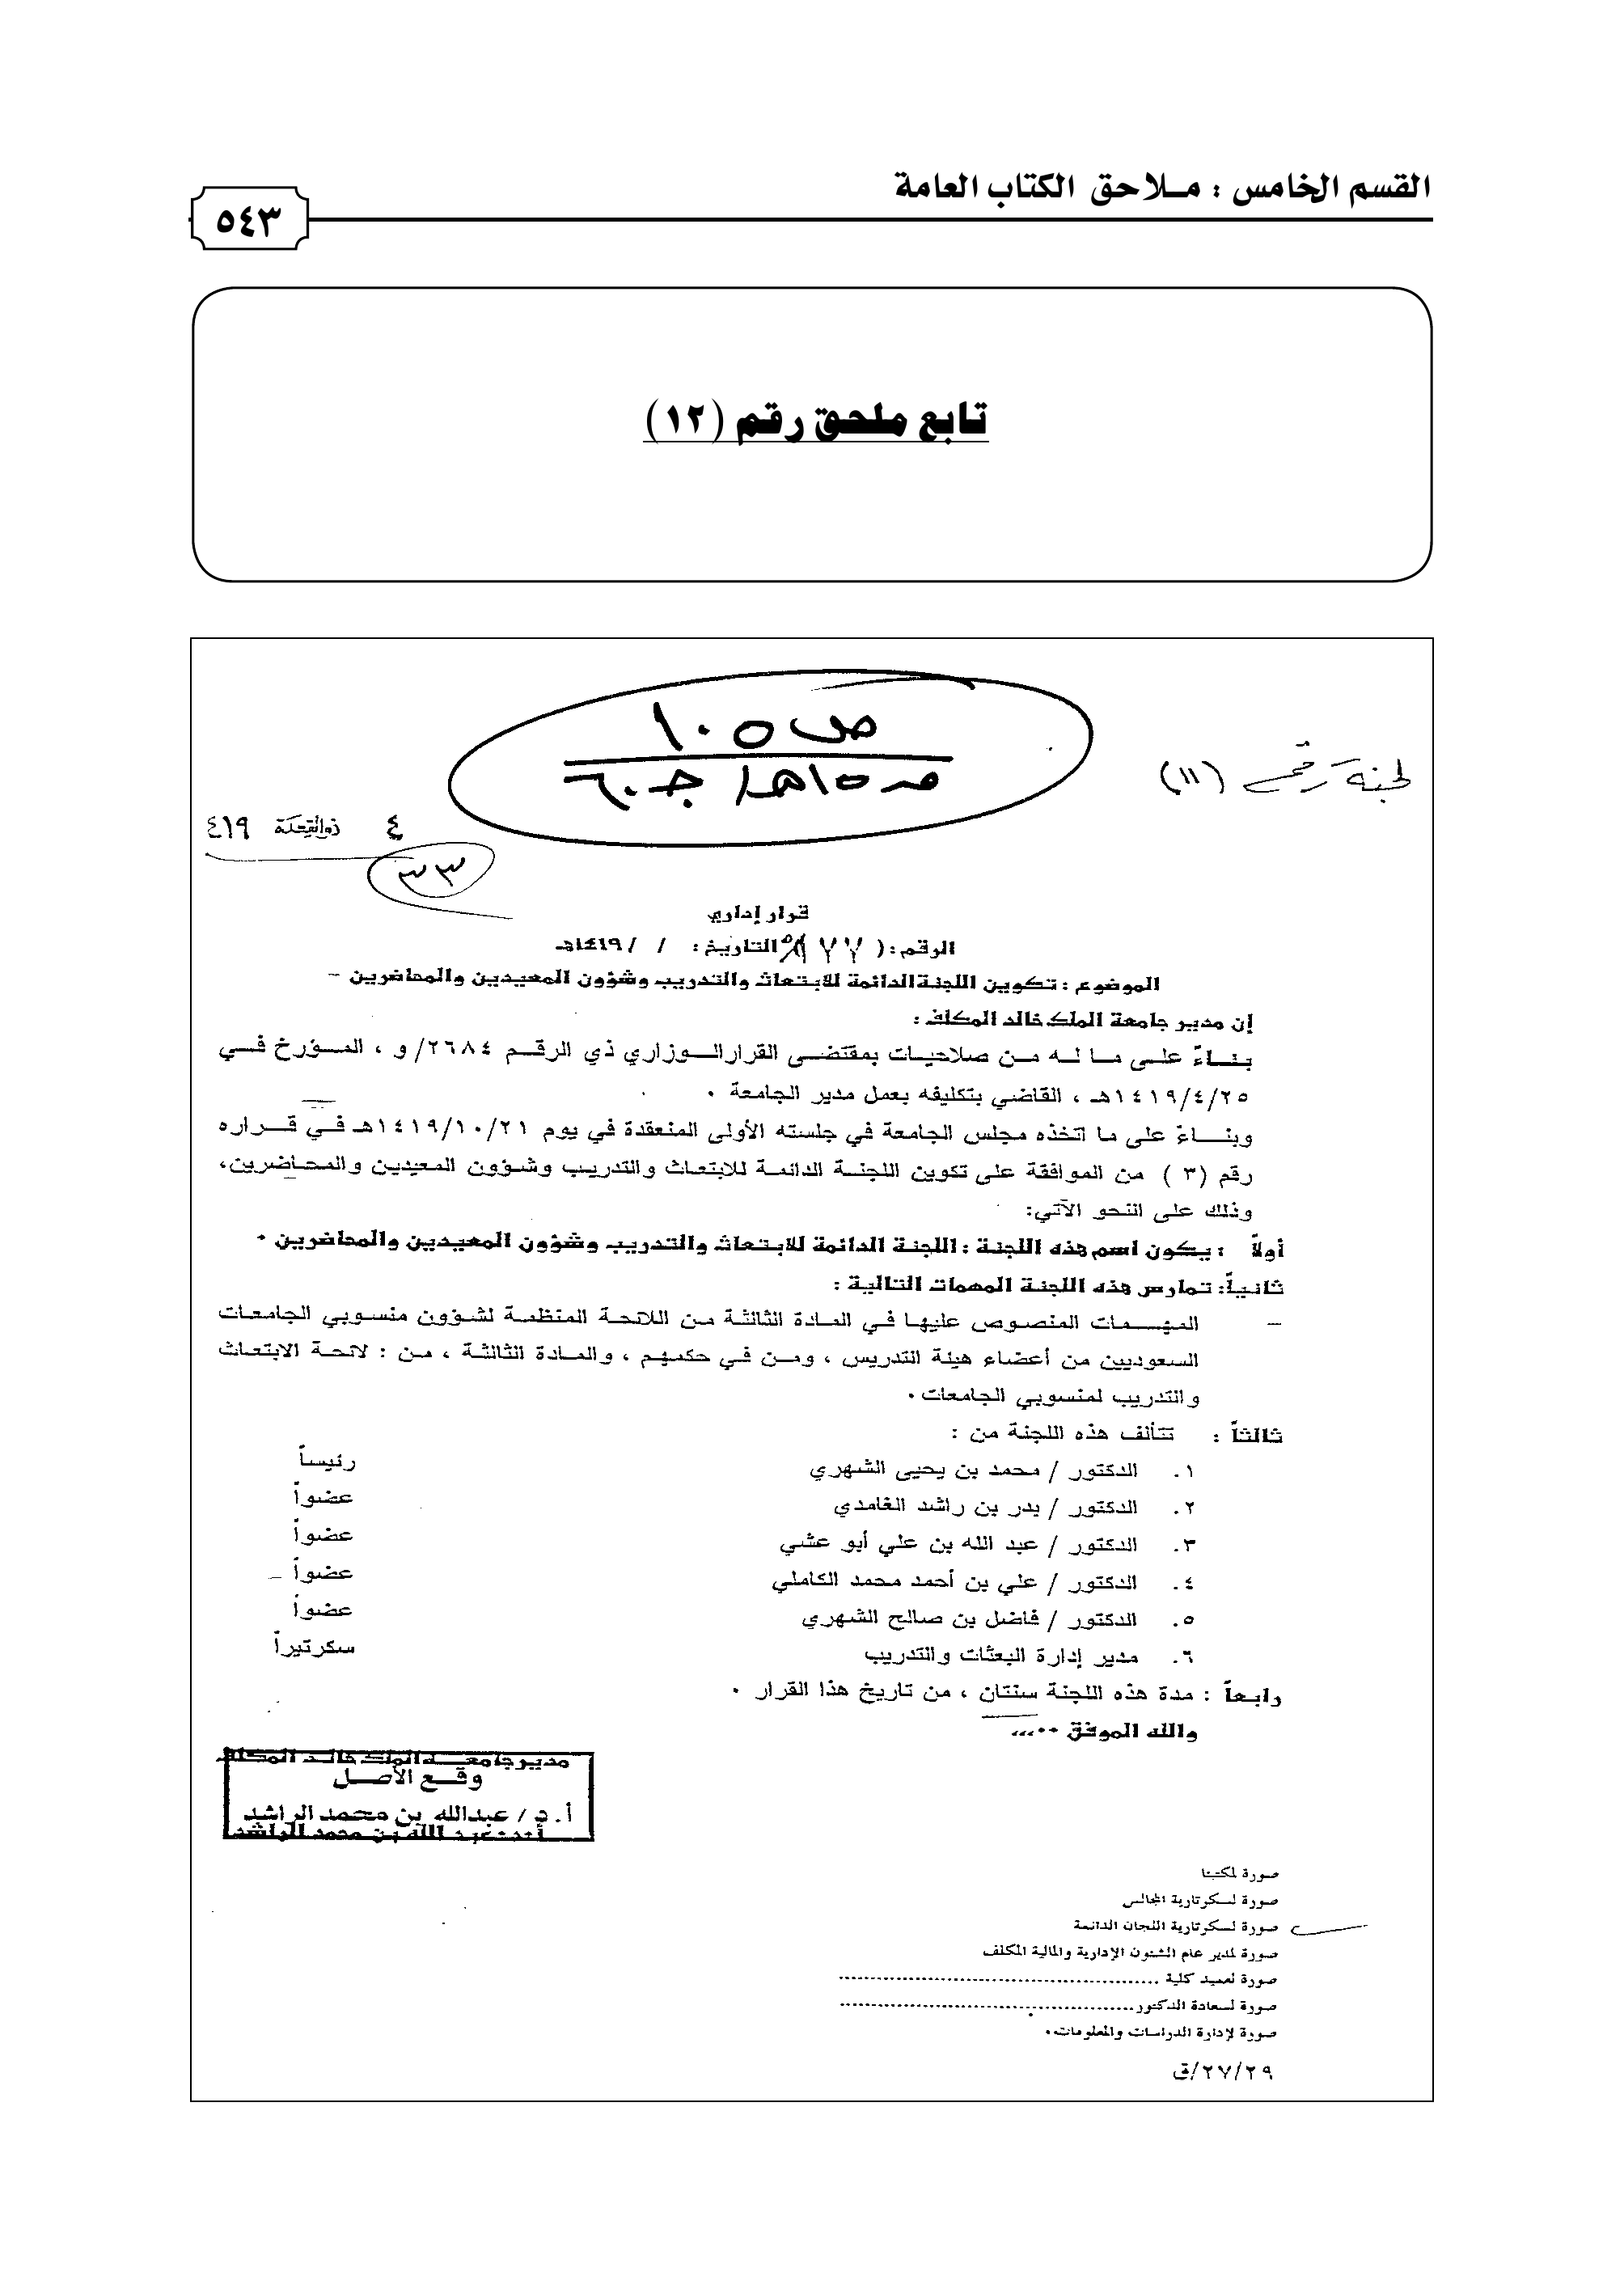 القسم الخامس : مـلاحق الكتاب العامة
٥٤٣
تابع ملحق رقم (١٢)
لجنة رقم (١١)
٤ ذو القعدة ٤١٩
٣٣
قرار إداري
الرقم : ( التاريخ : / / ١٤١٩هـ
الموضوع : تكوين اللجنة الدائمة للابتعاث والتدريب وشؤون المعيدين والمحاضرين -
إن مدير جامعة الملك خالد المكلف :
بناءً على ما له من صلاحيات بمقتضى القرار الوزاري ذي الرقم ٢٦٨٤/ و ، المؤرخ في
١٤١٩/٤/٢٥هـ ، القاضي بتكليفه بعمل مدير الجامعة .
وبناءً على ما اتخذه مجلس الجامعة في جلسته الأولى المنعقدة في يوم ١٤١٩/١٠/٢١هـ في قراره
رقم (٣ ) من الموافقة على تكوين اللجنة الدائمة للابتعاث والتدريب وشؤون المعيدين والمحاضرين،
وذلك على النحو الآتي:
أولاً : يكون اسم هذه اللجنة : اللجنة الدائمة للابتعاث والتدريب وشؤون المعيدين والمحاضرين .
ثانياً: تمارس هذه اللجنة المهمات التالية :
– المهمات المنصوص عليها في المادة الثالثة من اللائحة المنظمة لشؤون منسوبي الجامعات
السعوديين من أعضاء هيئة التدريس ، ومن في حكمهم ، والمادة الثالثة ، من : لائحة الابتعاث
والتدريب لمنسوبي الجامعات .
ثالثاً : تتألف هذه اللجنة من :
١. الدكتور / محمد بن يحيى الشهري رئيساً
٢. الدكتور / بدر بن راشد الغامدي عضواً
٣. الدكتور / عبد الله بن علي أبو عشي عضواً
٤. الدكتور / علي بن أحمد محمد الكاملي عضواً
٥. الدكتور / فاضل بن صالح الشهري عضواً
٦. مدير إدارة البعثات والتدريب سكرتيراً
رابعاً : مدة هذه اللجنة سنتان ، من تاريخ هذا القرار .
والله الموفق ٠٠،،،
مدير جامعة الملك خالد المكلف
وقع الأصل
أ . د / عبدالله بن محمد الراشد
أ.د. عبد الله بن محمد الراشد
صورة لمكتبنا
صورة لسكرتارية المجالس
صورة لسكرتارية اللجان الدائمة
صورة لمدير عام الشئون الإدارية والمالية المكلف
صورة لعميد كلية ..................................................
صورة لسعادة الدكتور..............................................
صورة لإدارة الدراسات والمعلومات.
٢٧/٢٩/ق